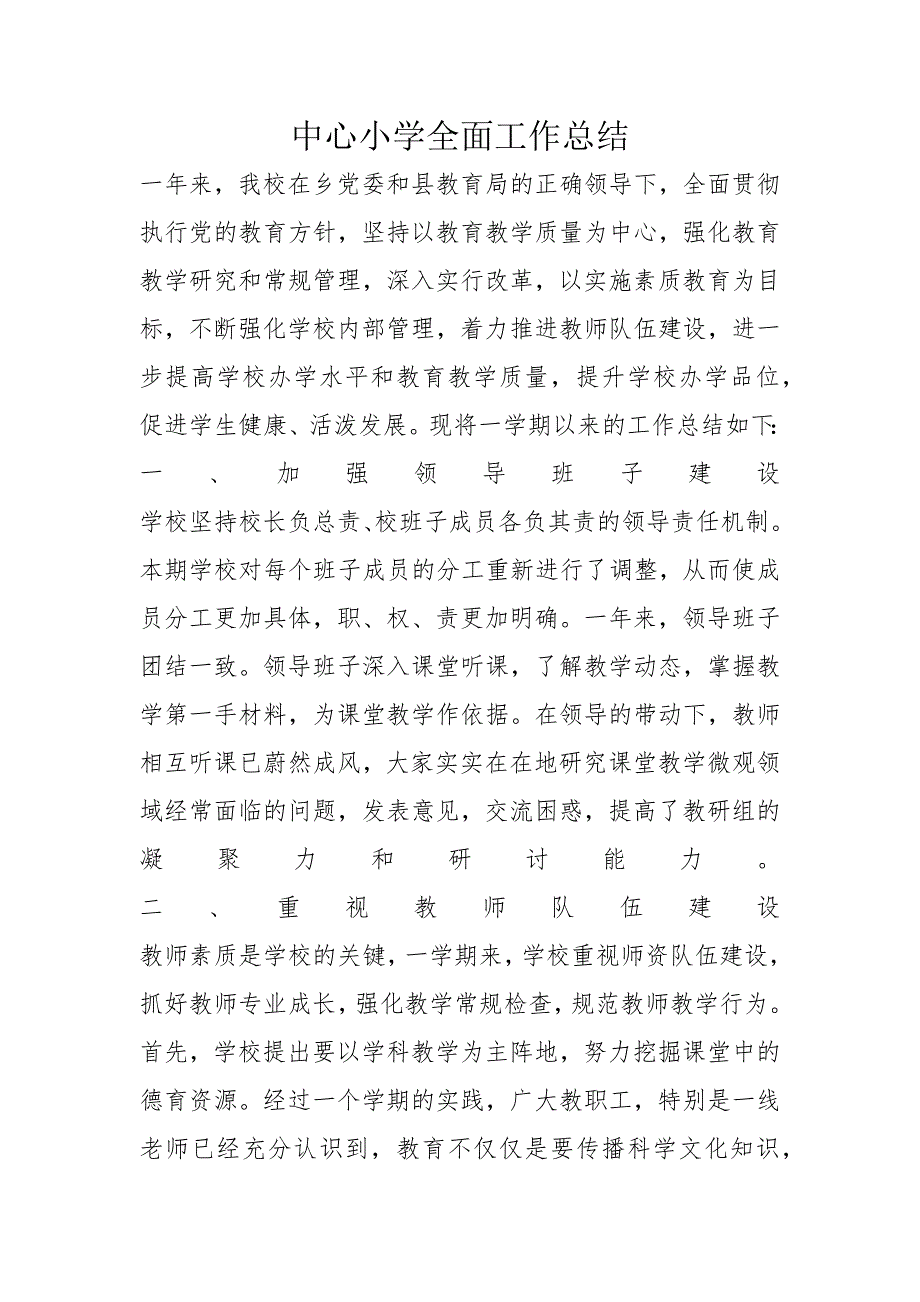 中心小学全面工作总结
一年来，我校在乡党委和县教育局的正确领导下，全面贯彻
执行党的教育方针，坚持以教育教学质量为中心，强化教育
教学研究和常规管理，深入实行改革，以实施素质教育为目
标，不断强化学校内部管理，着力推进教师队伍建设，进一
步提高学校办学水平和教育教学质量，提升学校办学品位，
促进学生健康、活泼发展。现将一学期以来的工作总结如下：
一、加强领导班子建设
学校坚持校长负总责、校班子成员各负其责的领导责任机制。
本期学校对每个班子成员的分工重新进行了调整，从而使成
员分工更加具体，职、权、责更加明确。一年来，领导班子
团结一致。领导班子深入课堂听课，了解教学动态，掌握教
学第一手材料，为课堂教学作依据。在领导的带动下，教师
相互听课已蔚然成风，大家实实在在地研究课堂教学微观领
域经常面临的问题，发表意见，交流困惑，提高了教研组的
凝聚力和研讨能力。
二、重视教师队伍建设
教师素质是学校的关键，一学期来，学校重视师资队伍建设，
抓好教师专业成长，强化教学常规检查，规范教师教学行为。
首先，学校提出要以学科教学为主阵地，努力挖掘课堂中的
德育资源。经过一个学期的实践，广大教职工，特别是一线
老师已经充分认识到，教育不仅仅是要传播科学文化知识，